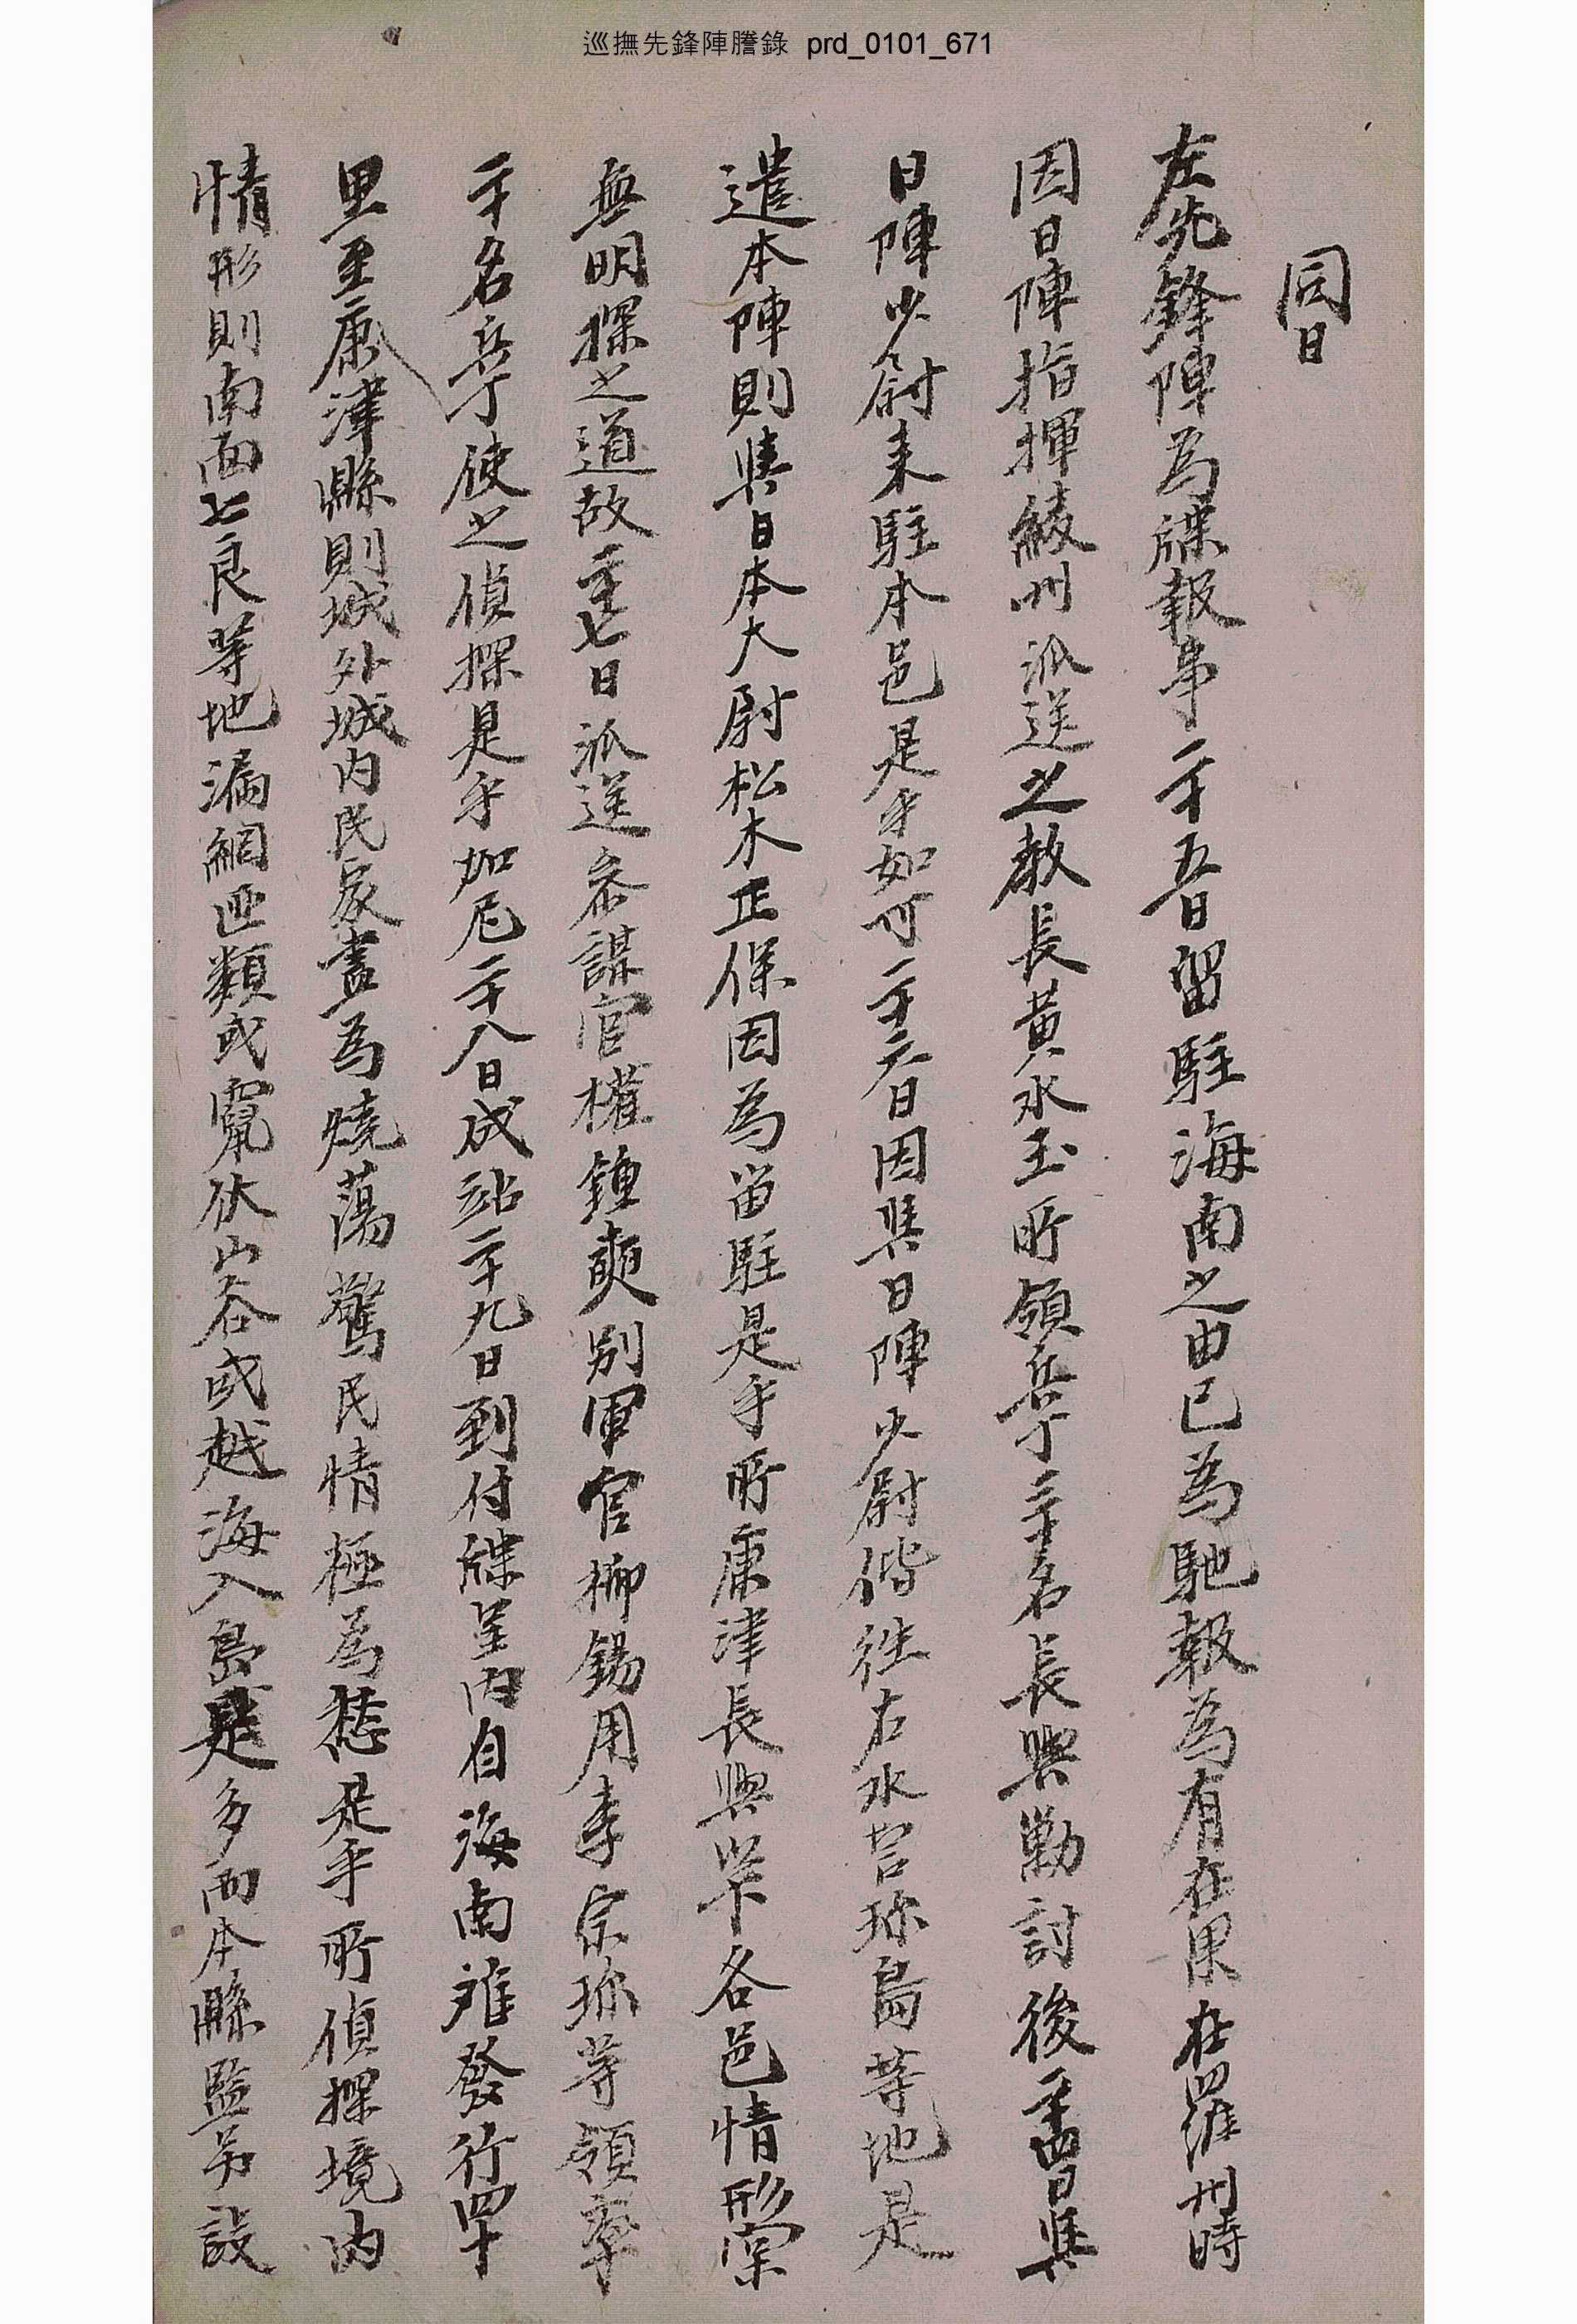 巡撫先鋒陣謄錄 prd_0101_671
同日
左先鋒陣爲牒報事二十五日留駐海南之由已爲馳報爲有在果在羅州時
因日陣指揮綾州派送之敎長黃水玉所領兵丁三十名長興勦討後二十四日與
日陣少尉來駐本邑是乎如可二十六日因與日陣少尉偕往右水營珍島等地是
遣本陣則與日本大尉松木正保因爲留駐是乎所康津長興等各邑情形窠
無明探之道故二十七日派送叅謀官權鍾奭別軍官柳錫用李宗珎等領率
二十名兵丁使之偵探是乎加尼二十八日成站二十九日到付牒呈內自海南離發行四十
里至康津縣則城外城內民家盡爲燒蕩驚民情極爲愁是乎所偵探境內
情形則南面七良等地漏網匪類或竄伏山谷或越海入島是多而本縣監另設